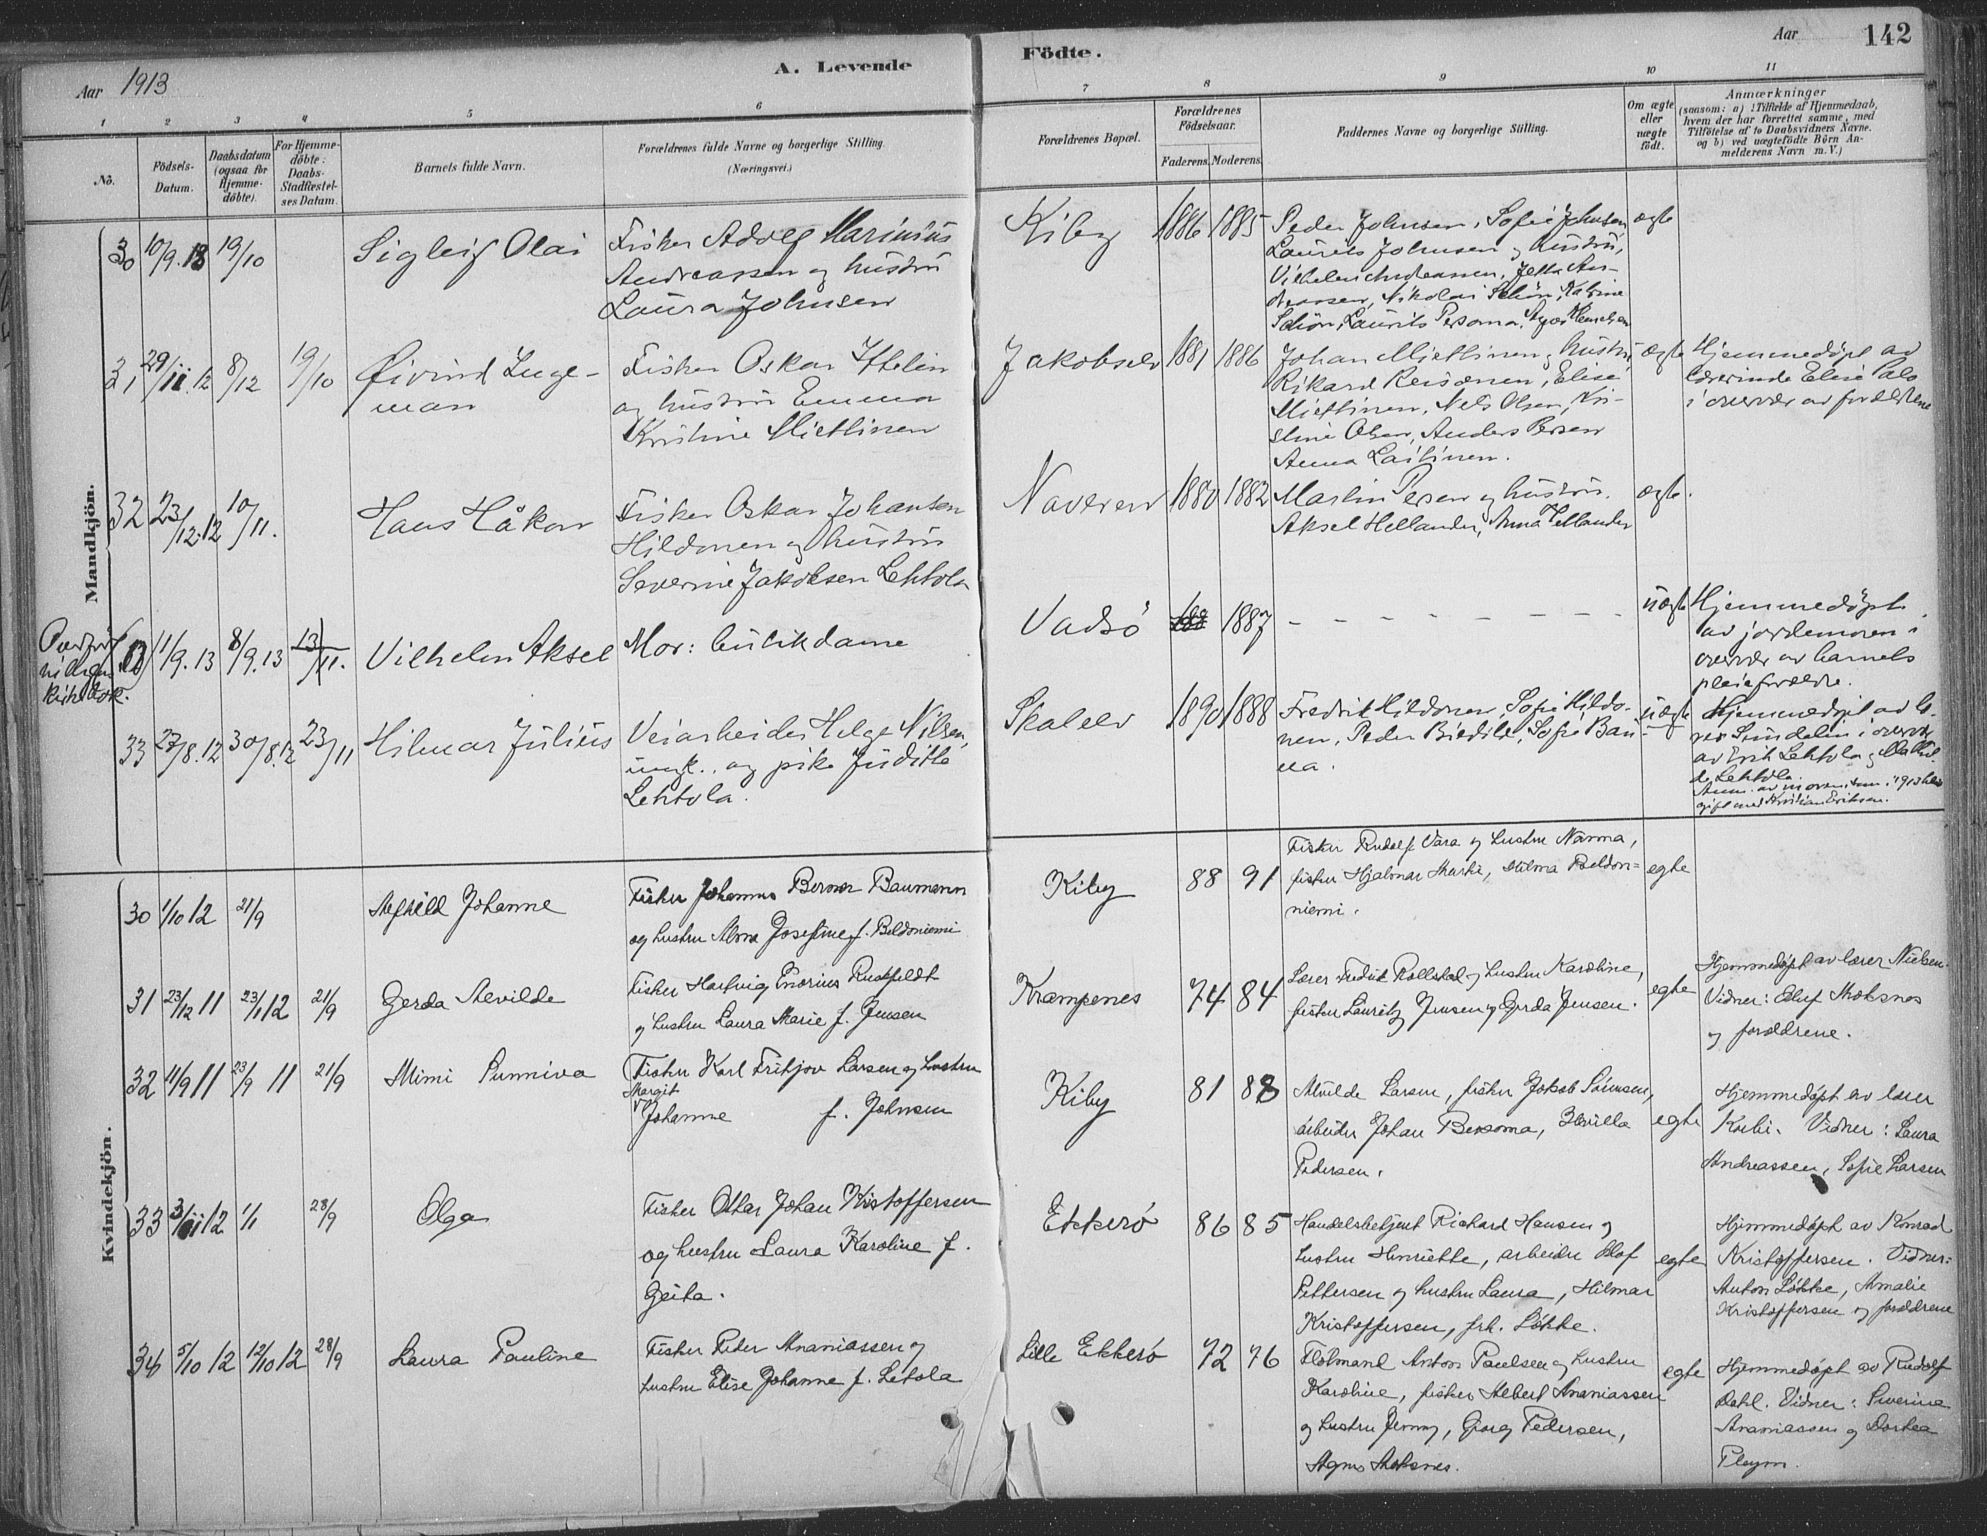 Aar 1913
A. Levende
Födte.
Aar
142
1 2 3 4 5 6 7 8 9 10 11
No.
Födsels-
Datum.
Daabsdatum
(ogsaa for
Hjemme-
döbte).
For Hjemme-
döbte:
Daabs-
Stadfæstel-
ses Datum.
Barnets fulde Navn.
Forældrenes fulde Navne og borgerlige Stilling.
(Næringsvei.)
Forældrenes Bopæl.
Forældrenes
Födselsaar.
Faderens. Moderens.
Faddernes Navne og borgerlige Stilling.
Om ægte
eller
uægte
födt.
Anmærkninger
(saasom: a) i Tilfælde af Hjemmedaab,
hvem der har forrettet samme, med
Tilföielse af to Daabsvidners Navne.
og b) ved uægtefödte Börn An-
melderens Navn m. V.)
Mandkjön.
30 10/9. 13 19/10 Sigleif Olai
Fisker Adolf Marinius
Andreassen og hustru
Laura Johnsen
Kiby 1886 1885
Peder Johnsen, Sofie Johnsen
Laurits Johnsen og hustru,
Vilhelm Andreassen, An-
dreassen, Nikolai Schön, Katrine
Schön, Laurits Persoma,
ægte
31 29/11.12 8/12 19/10 Øivind Inge-
man
Fisker Oskar Heelin
og hustru Emma
Kristine Miettinen
Jakobselv 1881 1886
Johan Miettinen og hustru
Rikard Reisænen, Elise
Miettinen, Nels Olsen, Kri-
stine Olsen, Anders Persen
Anna Laitinen.
ægte
Hjemmedøpt av
lærerinde Elise Palo
i overvær av forældrene
32 23/12.12 10/11. Hans Håkon
Fisker Oskar Johansen
Hildonen og hustru
Severine Jakobsen Lehtola
Naveren 1880 1882
Martin Persen og hustru.
Aksel Hellander, Anna Hellander
ægte.
Overført
kirkebok.
11/9. 13 8/9.13 13/11. Vilhelm Aksel
Mor: butikdame
Vadsö 188 1887
- - - - - - - -
uægte
Hjemmedøpt
av jordemoren i
overvær av barnets
pleieforældre.
33 27/8.12 30/8.12 23/11 Hilmar Julius
Veiarbeider Helge Nilsen,
ungk. og pike Juditte
Lehtola.
Skalelv 1890 1888
Fredrik Hildonen, Sofie Hildo-
nen, Peder Biedilæ, Sofie Bau
na.
uægte
Hjemmedøpt av læ-
rer Sundelin i overvær
av Erik Lehtola og Mathil-
de Lehtola.
Anm. av moren som i 1913 blev
gift med Kristian Eriksen.
Kvindekjön.
30 1/10 12 21/9 Alfhild Johanne
Fisker Johannes Berner Baumann
og hustru Alma Josefine f. Beldoniemi
Kiby 88 91
Fisker Rudolf Vara og hustru Nanna,
fisker Hjalmar Marki, Hilma Beldon=
niemi.
egte
31 23/12 11 23/1 12 21/9 Gerda Alvilde
Fisker Hartvig Enærius Ruckfeldt
og hustru Laura Marie f. Jensen
Krampenes 74 84
Lærer Fredrik Rollstad og hustru Karoline,
fisker Lauritz Jensen og Gerda Jensen.
egte
Hjemmedøpt av lærer Nielsen.
Vidner: Eluf Moksnes
og forældrene.
32 11/9 11 23/9 11 21/9 Mimi Sunniva
Fisker Karl Fritjov Larsen og hustru
Margit
Johanne f. Johnsen
Kiby 81 88
Alvilde Larsen, fisker Jakob Sörensen,
arbeider Johan Bersoma,
Pedersen.
egte
Hjemmedøpt av lærer
Korbi. Vidner: Laura
Andreassen, Sofie Larsen
33 3/11 12 1/1 28/9 Olga
Fisker Ottar Johan Kristoffersen
og hustru Laura Karoline f.
Geita.
Ekkerö 86 85
Handelsbetjent Richard Hansen og
hustru Henriette, arbeider Olaf
Pettersen og hustru Laura, Hilmar
Kristoffersen, frk. Løkke.
egte
Hjemmedøpt av Konrad
Kristoffersen. Vidner:
Anton Løkke, Amalie
Kristoffersen og forældrene
34 5/10 12 12/10 12 28/9 Laura Pauline
Fisker Peder Ananiassen og
hustru Elise Johanne f. Letola
Lille Ekkerö 72 76
Flotmand Anton Paulsen og hustru
Karoline, fisker Albert Ananiassen
og hustru Jenny, Georg Pedersen,
Agnes Moksnes.
egte
Hjemmedøpt av Rudolf
Dahl. Vidner: Severine
Ananiassen og Dortea
Pleym.